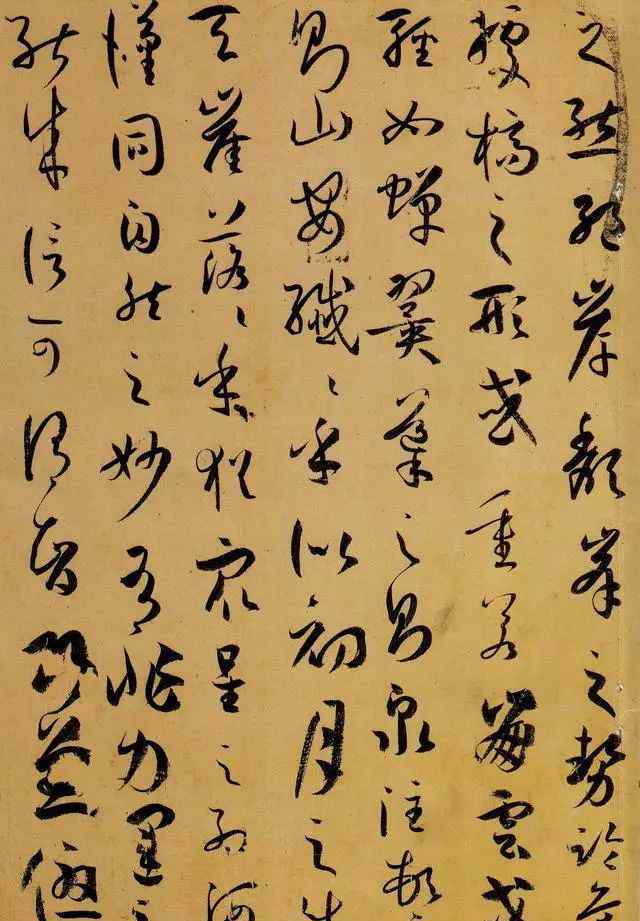 之態絕岸頹峯之勢臨危
據槁之形或重若崩雲或
輕如蟬翼導之則泉注頓之
則山安纖〻乎似初月之出
天崖落〻乎猶衆星之列河
漢同自然之妙有非力運之
能成信可謂智巧兼優